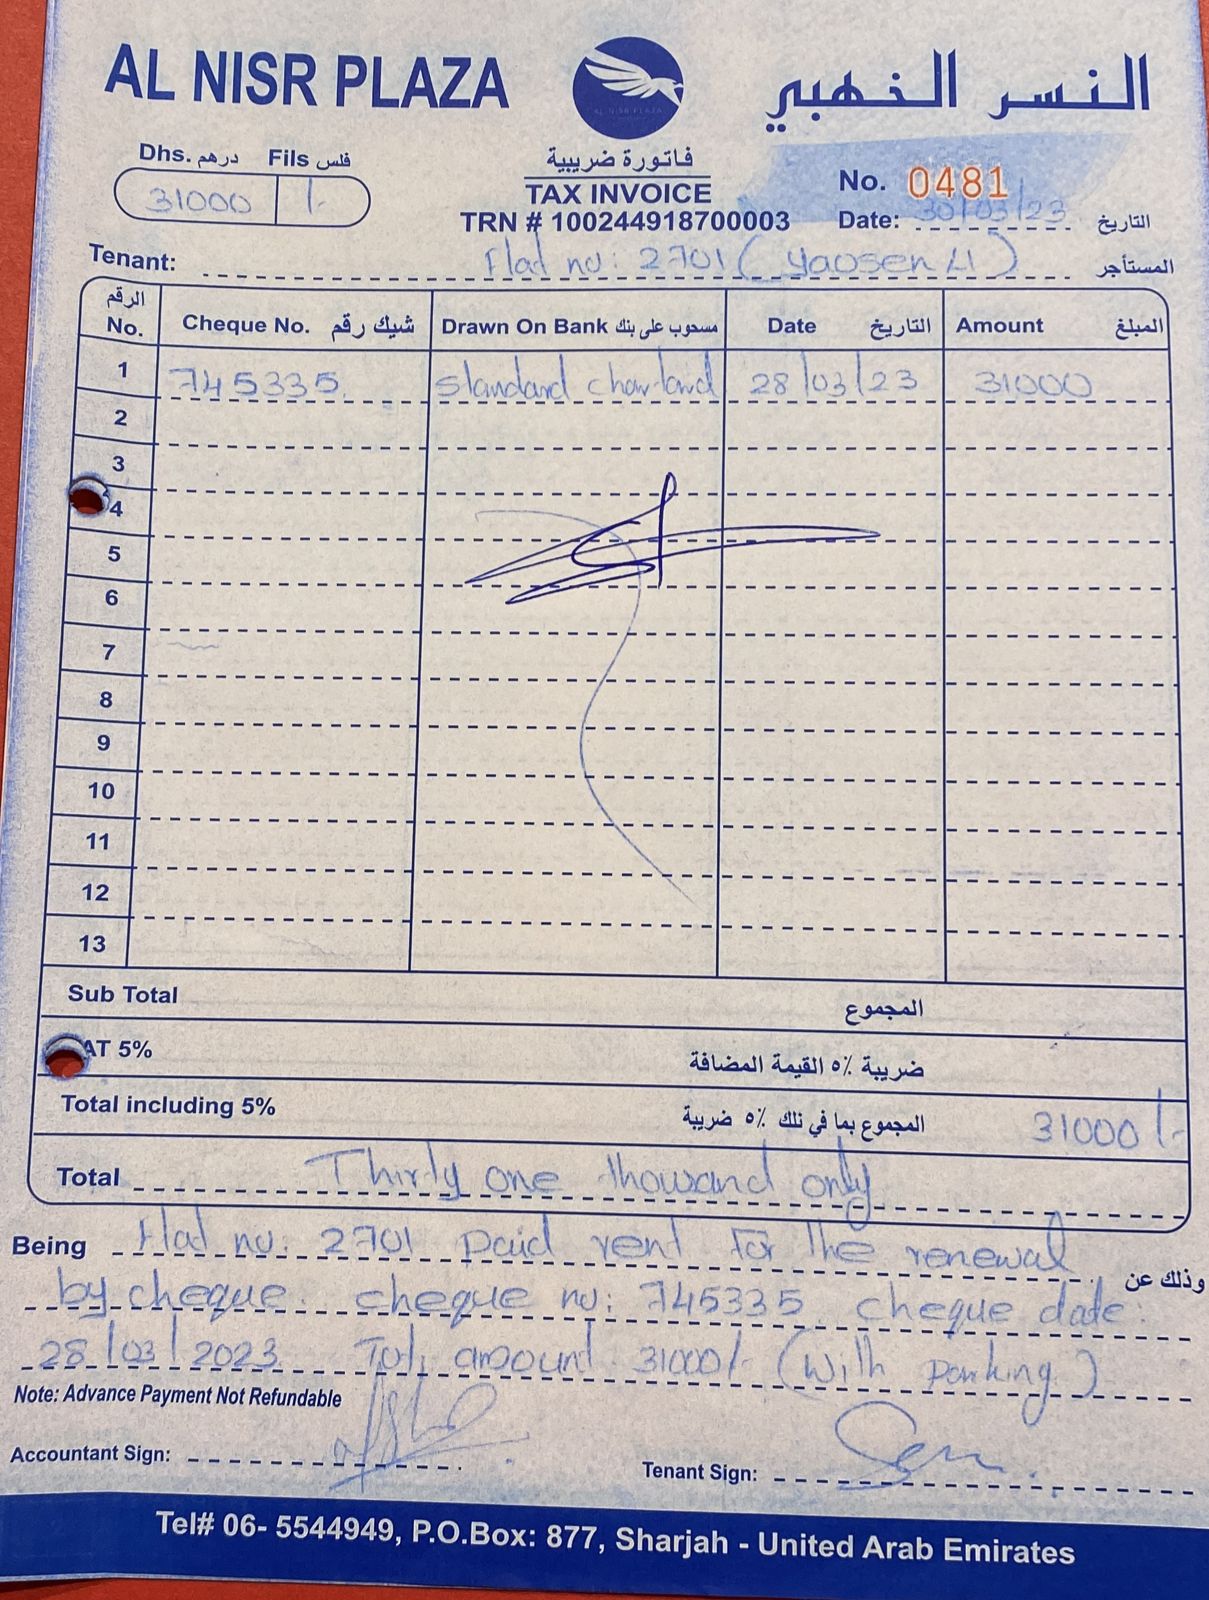 AL NISR PLAZA
النسر الذهبي
Dhs. درهم Fils فلس
31000 /-
فاتورة ضريبية
TAX INVOICE
TRN # 100244918700003
No. 0481
Date: 30/03/23 التاريخ
Tenant: Flat no: 2701 (Yaosen Li) المستأجر
الرقم No. Cheque No. شيك رقم Drawn On Bank مسحوب على بنك Date التاريخ Amount المبلغ
1 745335 Standard 28/03/23 31000
2
3
4
5
6
7
8
9
10
11
12
13
Sub Total المجموع
AT 5% ضريبة ٥٪ القيمة المضافة
Total including 5% المجموع بما في ذلك ٥٪ ضريبة 31000/-
Total Thirty one thousand only
Being Flat no: 2701 paid rent for the renewal وذلك عن
by cheque. cheque no: 745335 cheque date:
28/03/2023 Tot, amount 31000/- (with parking)
Note: Advance Payment Not Refundable
Accountant Sign:
Tenant Sign:
Tel# 06- 5544949, P.O.Box: 877, Sharjah - United Arab Emirates